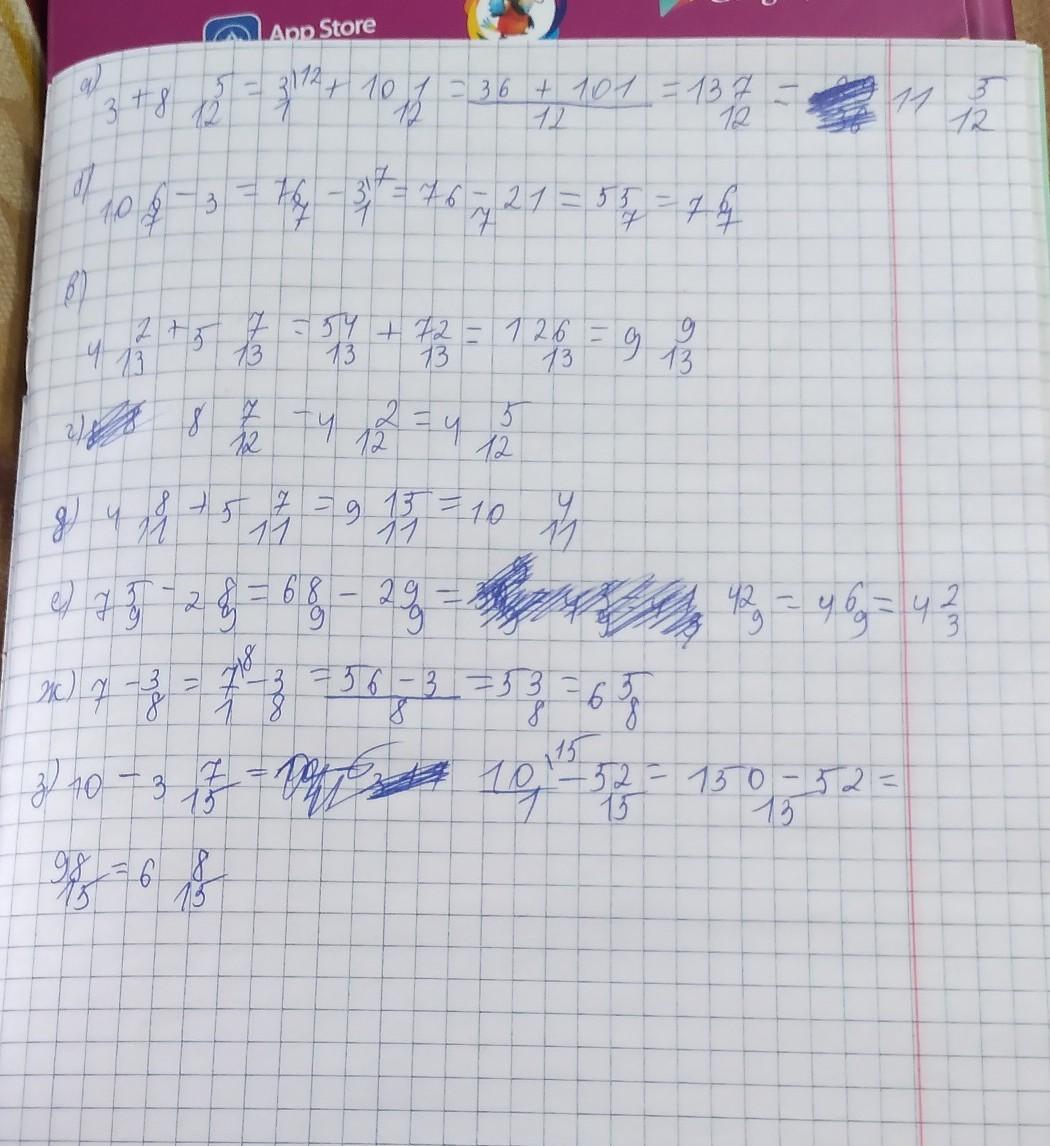 App Store
а) 3 + 8 5/12 = 3/1\12 + 101/12 = 36 + 101/12 = 137/12 = 11 5/12
б) 10 6/7 - 3 = 76/7 - 3/1\7 = 76 - 21/7 = 55/7 = 7 6/7
в)
4 2/13 + 5 7/13 = 54/13 + 72/13 = 126/13 = 9 9/13
г) 8 7/12 - 4 2/12 = 4 5/12
д) 4 8/11 + 5 7/11 = 9 15/11 = 10 4/11
е) 7 5/9 - 2 8/9 = 68/9 - 29/9 = 42/9 = 4 6/9 = 4 2/3
ж) 7 - 3/8 = 7/1\8 - 3/8 = 56 - 3/8 = 53/8 = 6 5/8
з) 10 - 3 7/15 = 10/1\15 - 52/15 = 150 - 52/15 =
98/15 = 6 8/15